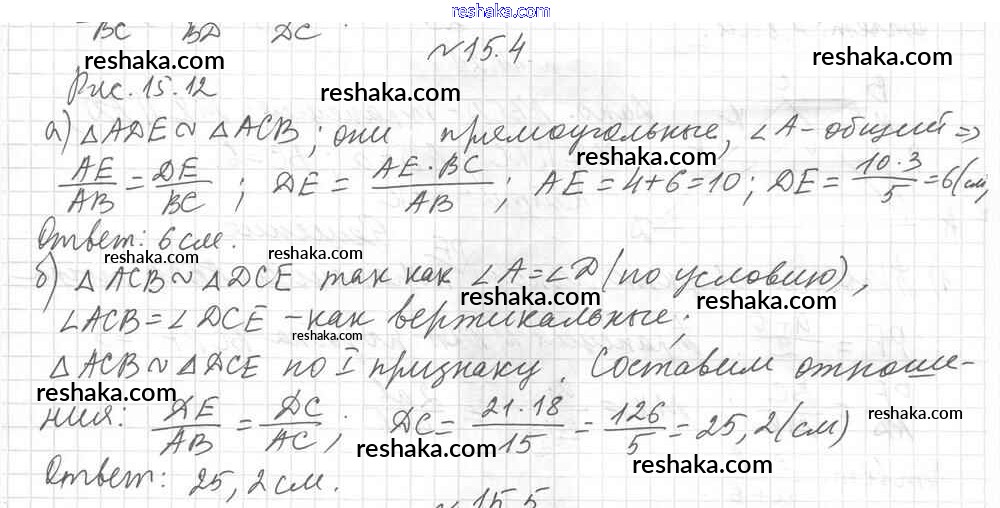 reshaka.com
BC BD DC
№15.4.
reshaka.com
Рис. 15.12
reshaka.com
а) △ADE ~ △ACB; они прямоугольные, ∠A-общий =>
reshaka.com
AE/AB = DE/BC; DE = AE·BC/AB; AE = 4+6=10; DE = 10·3/5 = 6(см)
reshaka.com
Ответ: 6 см.
reshaka.com
reshaka.com
б) △ACB ~ △DCE так как ∠A=∠D (по условию),
reshaka.com
reshaka.com
∠ACB = ∠DCE - как вертикальные;
reshaka.com
△ACB ~ △DCE по I признаку. Составим отноше-
reshaka.com
reshaka.com
ния: DE/AB = DC/AC; DC = 21·18/15 = 126/5 = 25,2 (см)
reshaka.com
reshaka.com
reshaka.com
Ответ: 25,2 см.
reshaka.com
№15.5